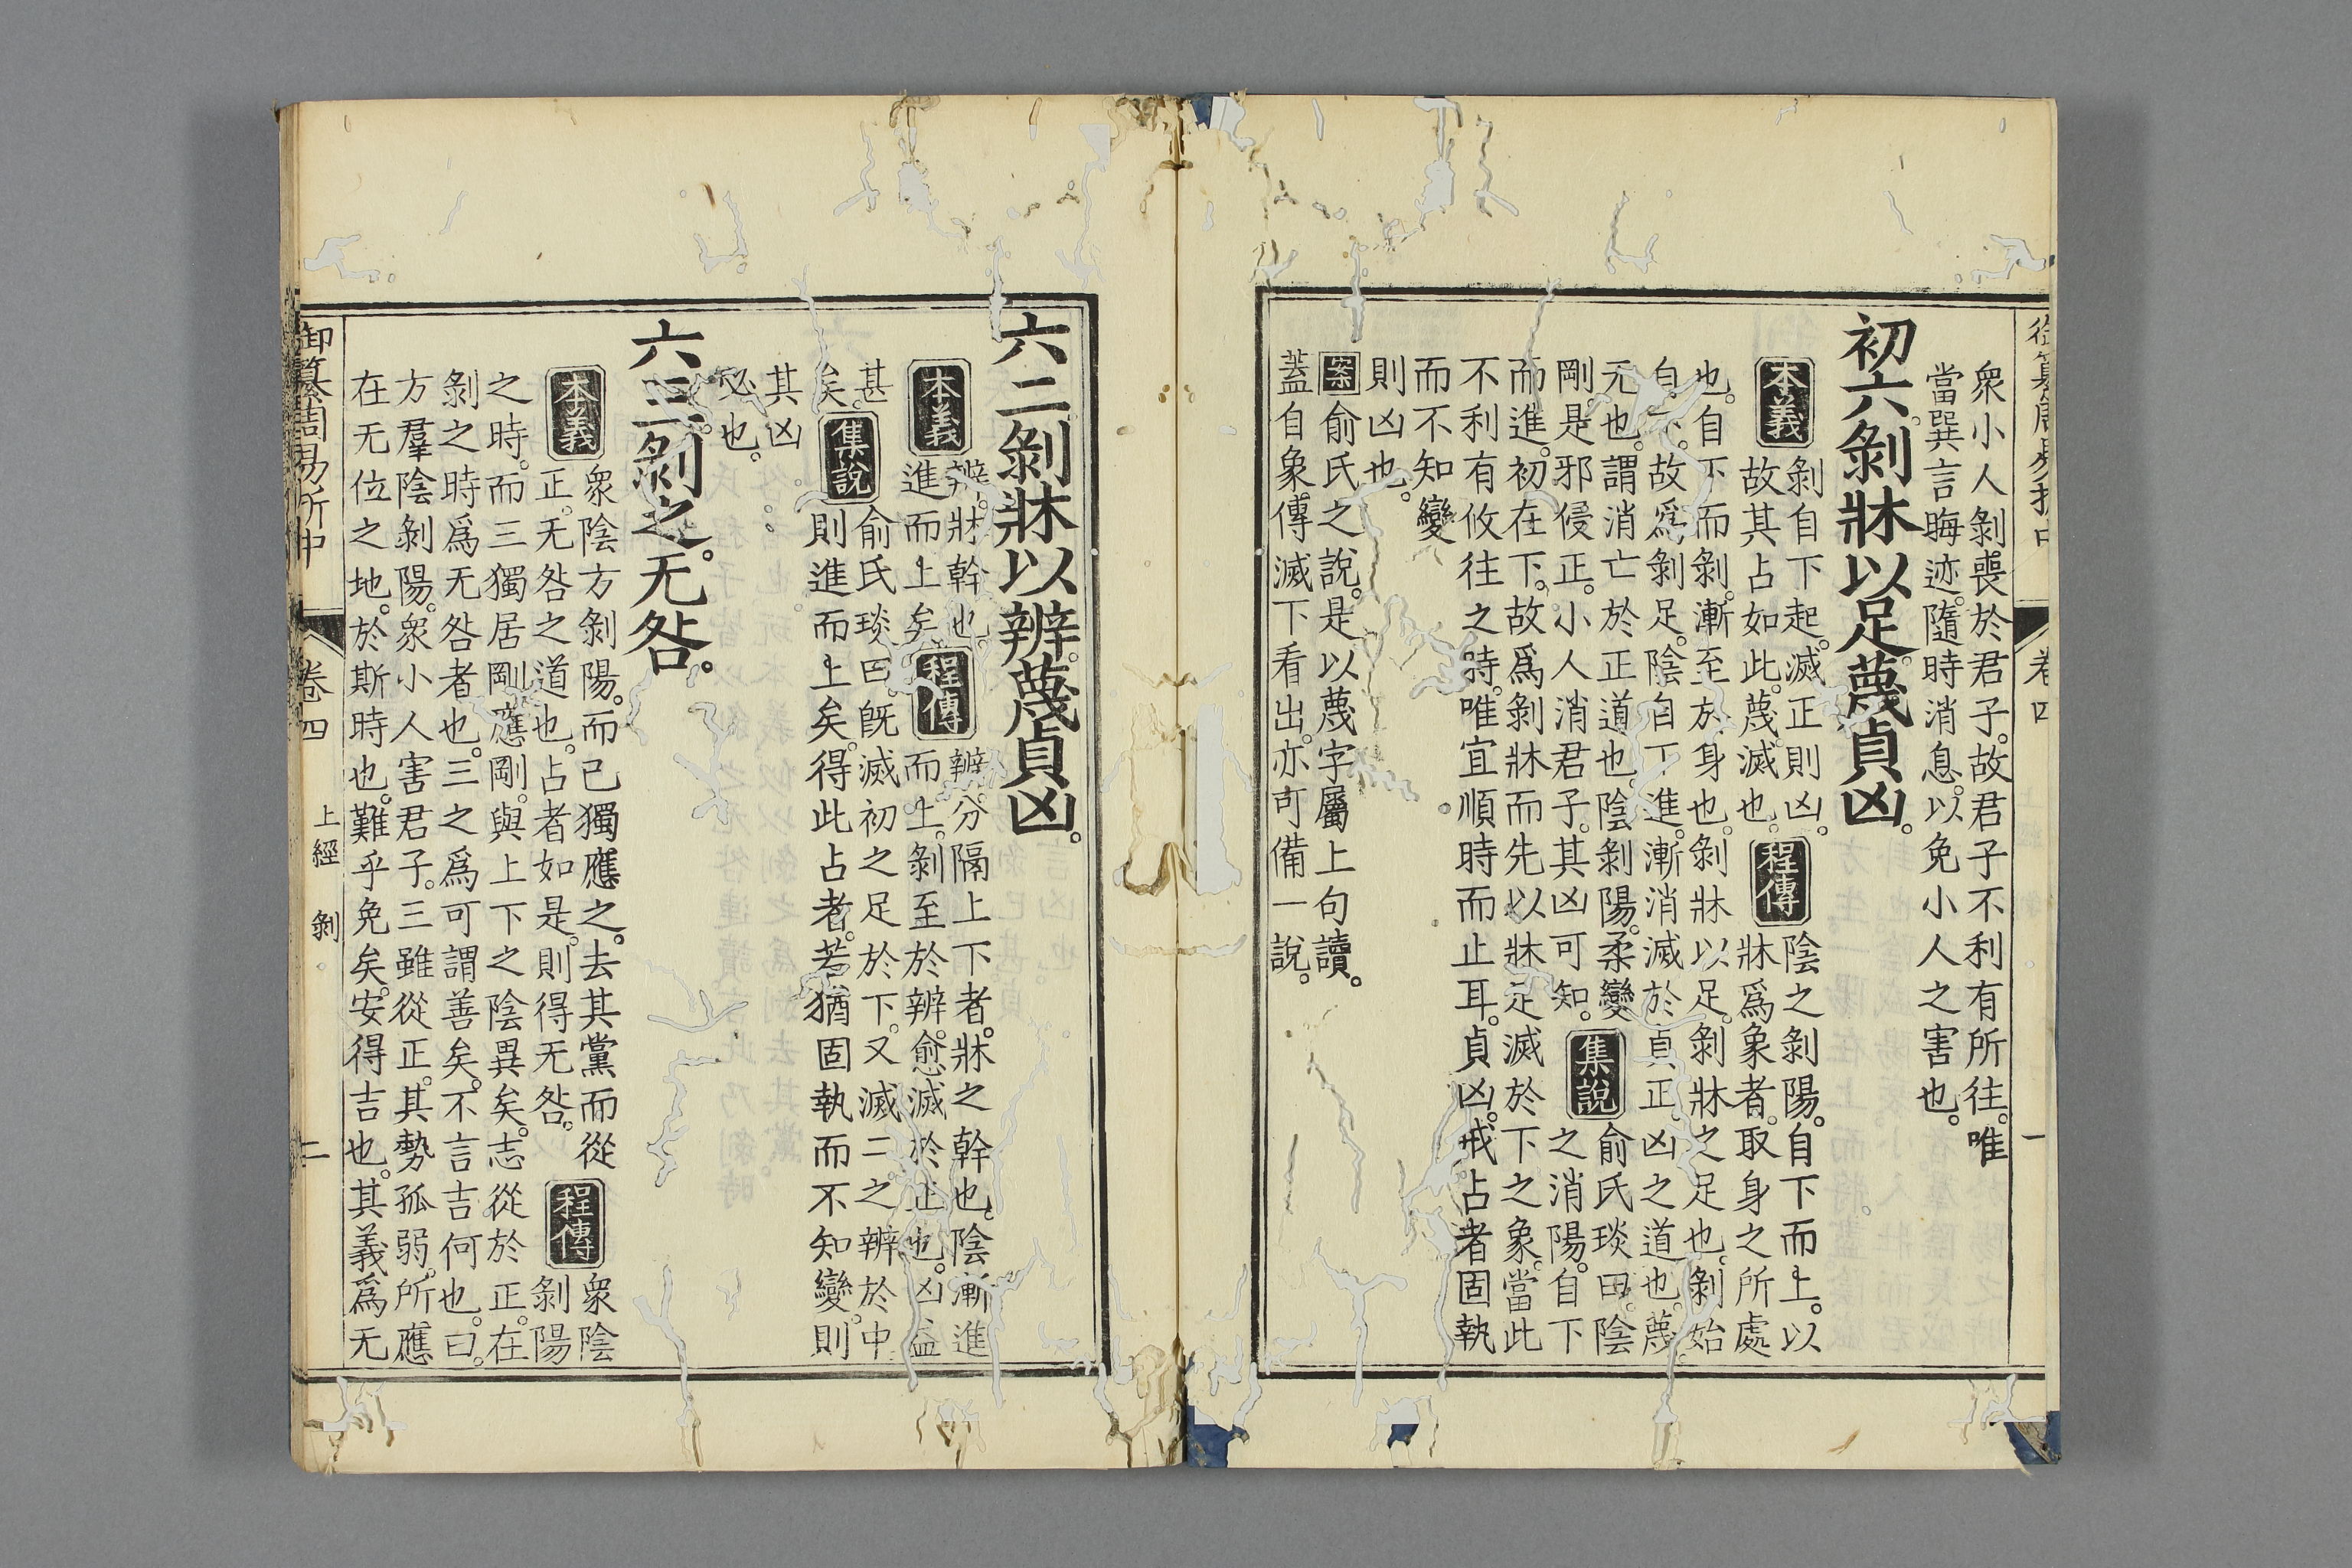 御纂周易折中 卷四 一
衆小人剝喪於君子。故君子不利有所往。唯
當巽言晦迹。隨時消息。以免小人之害也。
初六剝牀以足。蔑貞凶。
本義 剝自下起。滅正則凶。
故其占如此。蔑滅也。
程傳 陰之剝陽。自下而上。以
牀爲象者。取身之所處
也。自下而剝。漸至於身也。剝牀以足。剝牀之足也。剝始
自下。故爲剝足。陰自下進。漸消滅於貞正。凶之道也。蔑。
无也。謂消亡於正道也。陰剝陽。柔變
剛。是邪侵正。小人消君子。其凶可知。
集說 俞氏琰曰。陰
之消陽。自下
而進。初在下。故爲剝牀而先以牀足滅於下之象。當此
不利有攸往之時。唯宜順時而止耳。貞凶。戒占者固執
而不知變
則凶也。
案 俞氏之說。是以蔑字屬上句讀。
蓋自象傳滅下看出。亦可備一說。
六二剝牀以辨。蔑貞凶。
本義 辨。牀幹也。
進而上矣。
程傳 辨。分隔上下者。牀之幹也。陰漸進
而上。剝至於辨。愈滅於正也。凶益
甚
矣。
集說 俞氏琰曰。旣滅初之足於下。又滅二之辨於中。
則進而上矣。得此占者。若猶固執而不知變。則
其凶
必也。
六三剝之。无咎。
本義 衆陰方剝陽。而已獨應之。去其黨而從
正。无咎之道也。占者如是。則得无咎。
程傳 衆陰
剝陽
之時。而三獨居剛應剛。與上下之陰異矣。志從於正。在
剝之時爲无咎者也。三之爲可謂善矣。不言吉何也。曰。
方羣陰剝陽。衆小人害君子。三雖從正。其勢孤弱。所應
在无位之地。於斯時也。難乎免矣。安得吉也。其義爲无
御纂周易折中 卷四 上經 剝 二